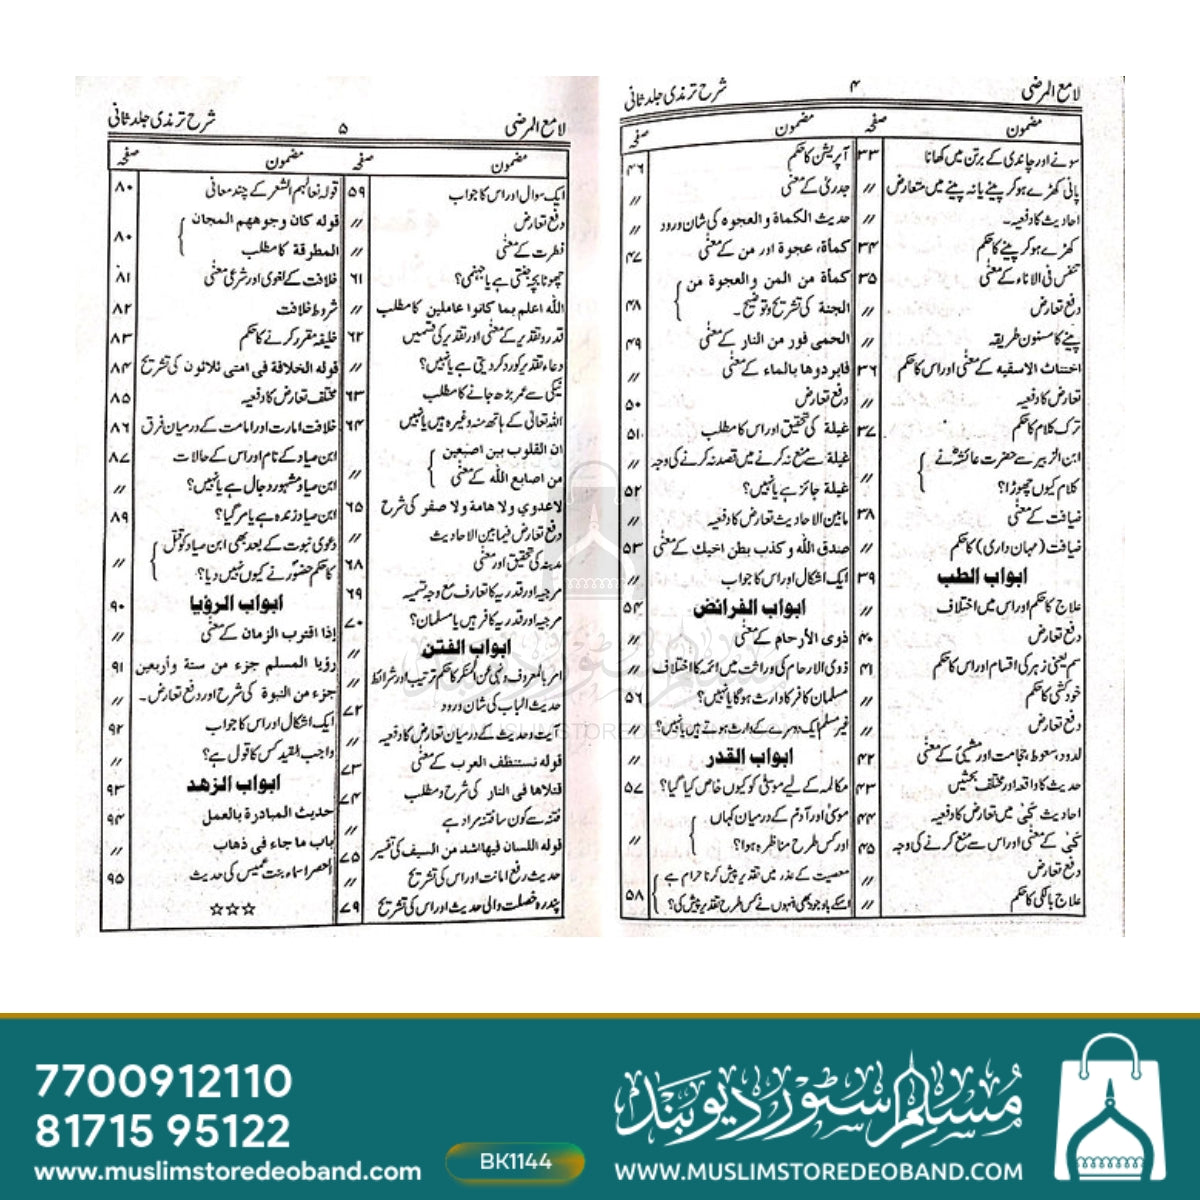 لامع المرضی ۴ شرح ترمذی جلد ثانی
مضمون صفحہ مضمون صفحہ
سونے اور چاندی کے برتن میں کھانا ۳۳
پانی کھڑے ہو کر پینے یا نہ پینے میں متعارض 〃
احادیث کا دفعیہ۔ 〃
کھڑے ہو کر پینے کا حکم ۳۴
تنفس فی الاناء کے معنٰی ۳۵
دفع تعارض 〃
پینے کا مسنون طریقہ 〃
اختناث الاسقیہ کے معنٰی اور اس کا حکم ۳۶
تعارض کا دفعیہ 〃
ترک کلام کا حکم ۳۷
ابن الزبیر سے حضرت عائشہؓ نے
کلام کیوں چھوڑا؟ 〃
ضیافت کے معنٰی ۳۸
ضیافت (مہمان داری) کا حکم 〃
ابواب الطب ۳۹
علاج کا حکم اور اس میں اختلاف 〃
دفع تعارض ۴۰
سم یعنی زہر کی اقسام اور اس کا حکم ۴۱
خود کشی کا حکم 〃
دفع تعارض 〃
لدود، سعوط، حجامت اور مشیٔ کے معنٰی ۴۲
حدیث کا واقعہ اور مختلف بحثیں ۴۳
احادیث کیّ میں تعارض کا دفعیہ ۴۴
کیّ کے معنٰی اور اس سے منع کرنے کی وجہ ۴۵
دفع تعارض 〃
علاج بالکی کا حکم 〃
آپریشن کا حکم ۴۶
جدری کے معنٰی 〃
حدیث الکماۃ و العجوہ کی شان ورود 〃
کمأۃ، عجوۃ اور من کے معنٰی ۴۷
کمأة من المن والعجوة من
الجنة کی تشریح و توضیح۔ ۴۸
الحمی فور من النار کے معنٰی ۴۹
فابردوها بالماء کے معنٰی 〃
دفع تعارض ۵۰
غیلة کی تحقیق اور اس کا مطلب ۵۱
غیلة سے منع نہ کرنے میں قصد نہ کرنے کی وجہ 〃
غیلة جائز ہے یا نہیں؟ ۵۲
مابین الاحادیث تعارض کا دفعیہ 〃
صدق الله و کذب بطن اخیك کے معنٰی ۵۳
ایک اشکال اور اس کا جواب 〃
ابواب الفرائض ۵۴
ذوی الأرحام کے معنٰی 〃
ذوی الارحام کی وراثت میں ائمہ کا اختلاف 〃
مسلمان کافر کا وارث ہوگا یا نہیں؟ ۵۶
غیر مسلم ایک دوسرے کے وارث ہوتے ہیں یا نہیں؟ 〃
ابواب القدر 〃
مکالمہ کے لیے موسیٰؑ کو کیوں خاص کیا گیا؟ ۵۷
موسیٰؑ اور آدمؑ کے درمیان کہاں
اور کس طرح مناظرہ ہوا؟ 〃
معصیت کے عذر میں تقدیر پیش کرنا حرام ہے
اسکے باوجود بھی انہوں نے کس طرح تقدیر پیش کی؟ ۵۸
لامع المرضی ۵ شرح ترمذی جلد ثانی
مضمون صفحہ مضمون صفحہ
ایک سوال اور اس کا جواب ۵۹
دفع تعارض 〃
فطرت کے معنٰی 〃
چھوٹا بچہ جنتی ہے یا جہنمی؟ ۶۱
الله اعلم بما كانوا عاملین کا مطلب 〃
قدر و تقدیر کے معنٰی اور تقدیر کی قسمیں ۶۲
دعاء تقدیر کو رد کر دیتی ہے یا نہیں؟ 〃
نیکی سے عمر بڑھ جانے کا مطلب ۶۳
اللہ تعالیٰ کے ہاتھ منہ وغیرہ ہیں یا نہیں ۶۴
ان القلوب بین اصبعین
من اصابع الله کے معنٰی 〃
لاعدوی ولا هامة ولا صفر کی شرح ۶۵
دفع تعارض فیما بین الاحادیث 〃
مدینہ کی تحقیق اور معنٰی ۶۸
مرجیہ اور قدریہ کا تعارف مع وجہ تسمیہ ۶۹
مرجیہ اور قدریہ کافر ہیں یا مسلمان؟ ۷۰
ابواب الفتن 〃
امر بالمعروف و نہی عن المنکر کا حکم ترتیب اور شرائط 〃
حدیث الباب کی شان ورود ۷۲
آیت و حدیث کے درمیان تعارض کا دفعیہ 〃
قوله تستنظف العرب کے معنٰی ۷۳
قتلاها فی النار کی شرح و مطلب ۷۴
فتنہ سے کون سا فتنہ مراد ہے 〃
قوله اللسان فیها اشد من السیف کی تفسیر ۷۵
حدیث رفع امانت اور اس کی تشریح 〃
پندرہ خصلت والی حدیث اور اس کی تشریح ۷۹
قوله نعالهم الشعر کے چند معانی ۸۰
قوله كان وجوههم المجان
المطرقة کا مطلب ۸۰
خلافت کے لغوی اور شرعی معنٰی ۸۱
شروط خلافت ۸۲
خلیفہ مقرر کرنے کا حکم ۸۳
قوله الخلافة فی امتی ثلاثون کی تشریح ۸۴
مختلف تعارض کا دفعیہ ۸۵
خلافت امارت اور امامت کے درمیان فرق ۸۶
ابن صیاد کے نام اور اس کے حالات ۸۷
ابن صیاد مشہور دجال ہے یا نہیں؟ 〃
ابن صیاد زندہ ہے یا مر گیا؟ ۸۹
دعوی نبوت کے بعد بھی ابن صیاد کو قتل
کا حکم حضورؐ نے کیوں نہیں دیا؟ 〃
ابواب الرؤیا ۹۰
إذا اقترب الزمان کے معنٰی 〃
رؤیا المسلم جزء من ستة وأربعین ۹۱
جزء من النبوة کی شرح اور دفع تعارض۔ 〃
ایک اشکال اور اس کا جواب ۹۲
واجب المقید کس کا قول ہے؟ 〃
ابواب الزهد ۹۳
حدیث المبادرة بالعمل ۹۴
باب ما جاء فی ذهاب 〃
اسماء بنت عمیس کی حدیث ۹۵
☆☆☆
WWW.MUSLIMSTOREDEOBAND.COM
7700912110
81715 95122
www.muslimstoredeoband.com
BK1144
مُسلم سٹور دیوبند
WWW.MUSLIMSTOREDEOBAND.COM